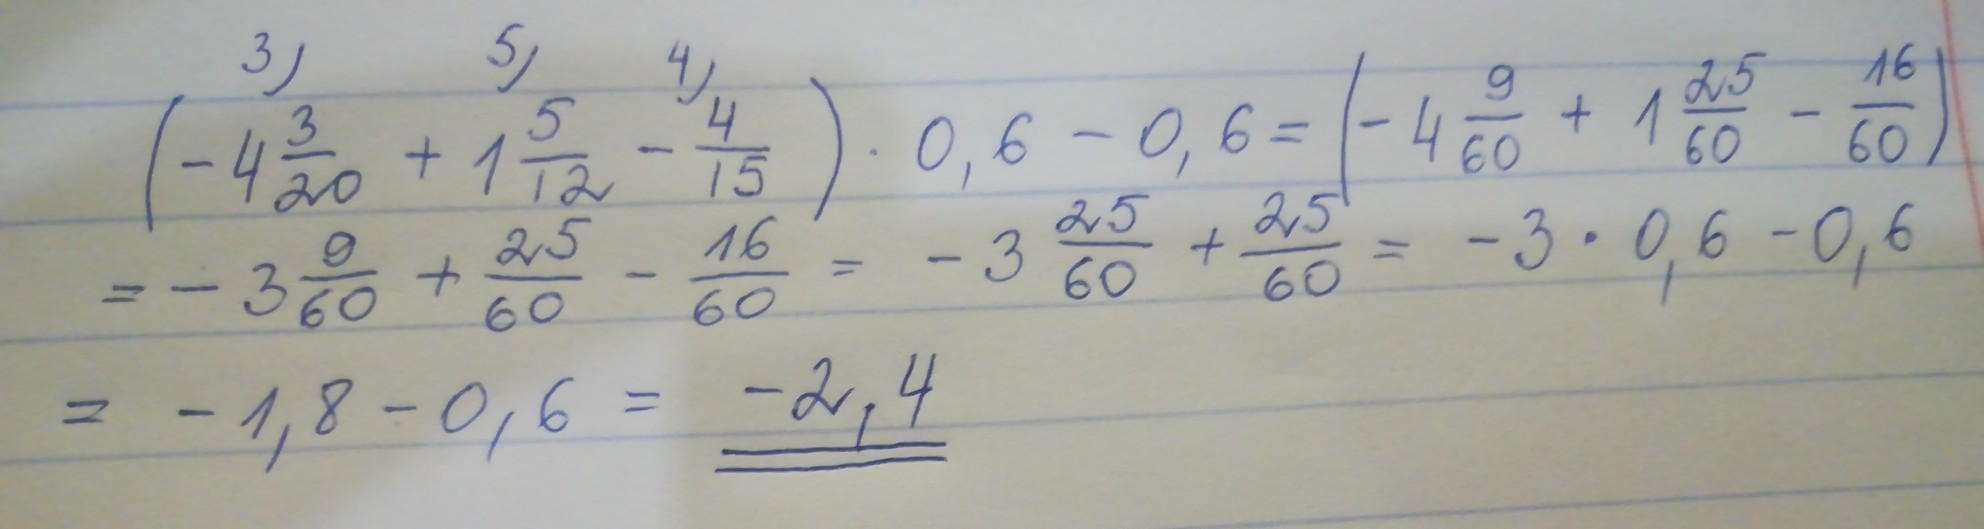 3) 5) 4)
(-4 3/20 + 1 5/12 - 4/15) · 0,6 - 0,6 = (-4 9/60 + 1 25/60 - 16/60)
= -3 9/60 + 25/60 - 16/60 = -3 25/60 + 25/60 = -3 · 0,6 - 0,6
= -1,8 - 0,6 = -2,4